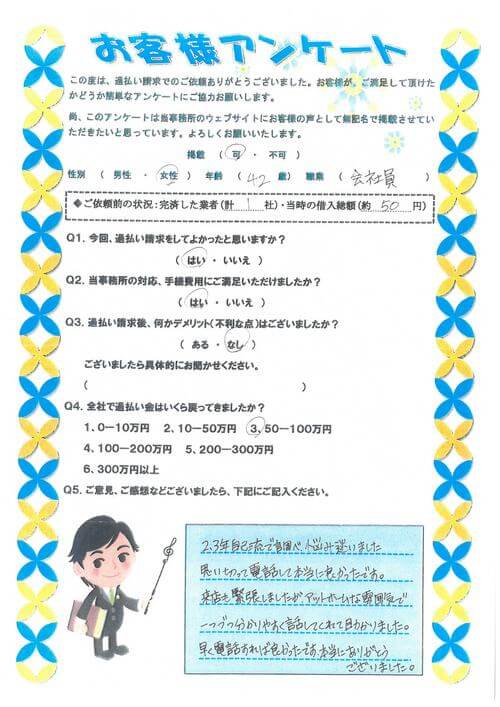 お客様アンケート
この度は、過払い請求でのご依頼ありがとうございました。お客様が、ご満足して頂けた
かどうか簡単なアンケートにご協力お願いします。
尚、このアンケートは当事務所のウェブサイトにお客様の声として無記名で掲載させてい
ただきたいと思っています。よろしくお願いいたします。
掲載 ( 可 ・ 不可 )
性別 ( 男性 ・ 女性 ) 年齢 ( 42 歳) 職業 ( 会社員 )
◆ご依頼前の状況:完済した業者(計 1 社)・当時の借入総額(約 50 円)
Q1. 今回、過払い請求をしてよかったと思いますか?
( はい ・ いいえ )
Q2. 当事務所の対応、手続費用にご満足いただけましたか?
( はい ・ いいえ )
Q3. 過払い請求後、何かデメリット(不利な点)はございましたか?
( ある ・ なし )
ございましたら具体的にお聞かせください。
( )
Q4. 全社で過払い金はいくら戻ってきましたか?
1、0-10万円 2、10-50万円 3、50-100万円
4、100-200万円 5、200-300万円
6、300万円以上
Q5. ご意見、ご感想などございましたら、下記にご記入ください。
2.3年自己流で自調べ、悩み迷いました
思い切って電話して本当に良かったです。
来店も緊張しましたがアットホームな雰囲気で
一つづつ分かりやすく話してくれて助かりました。
早く電話すれば良かったです。本当にありがとう
ございました。